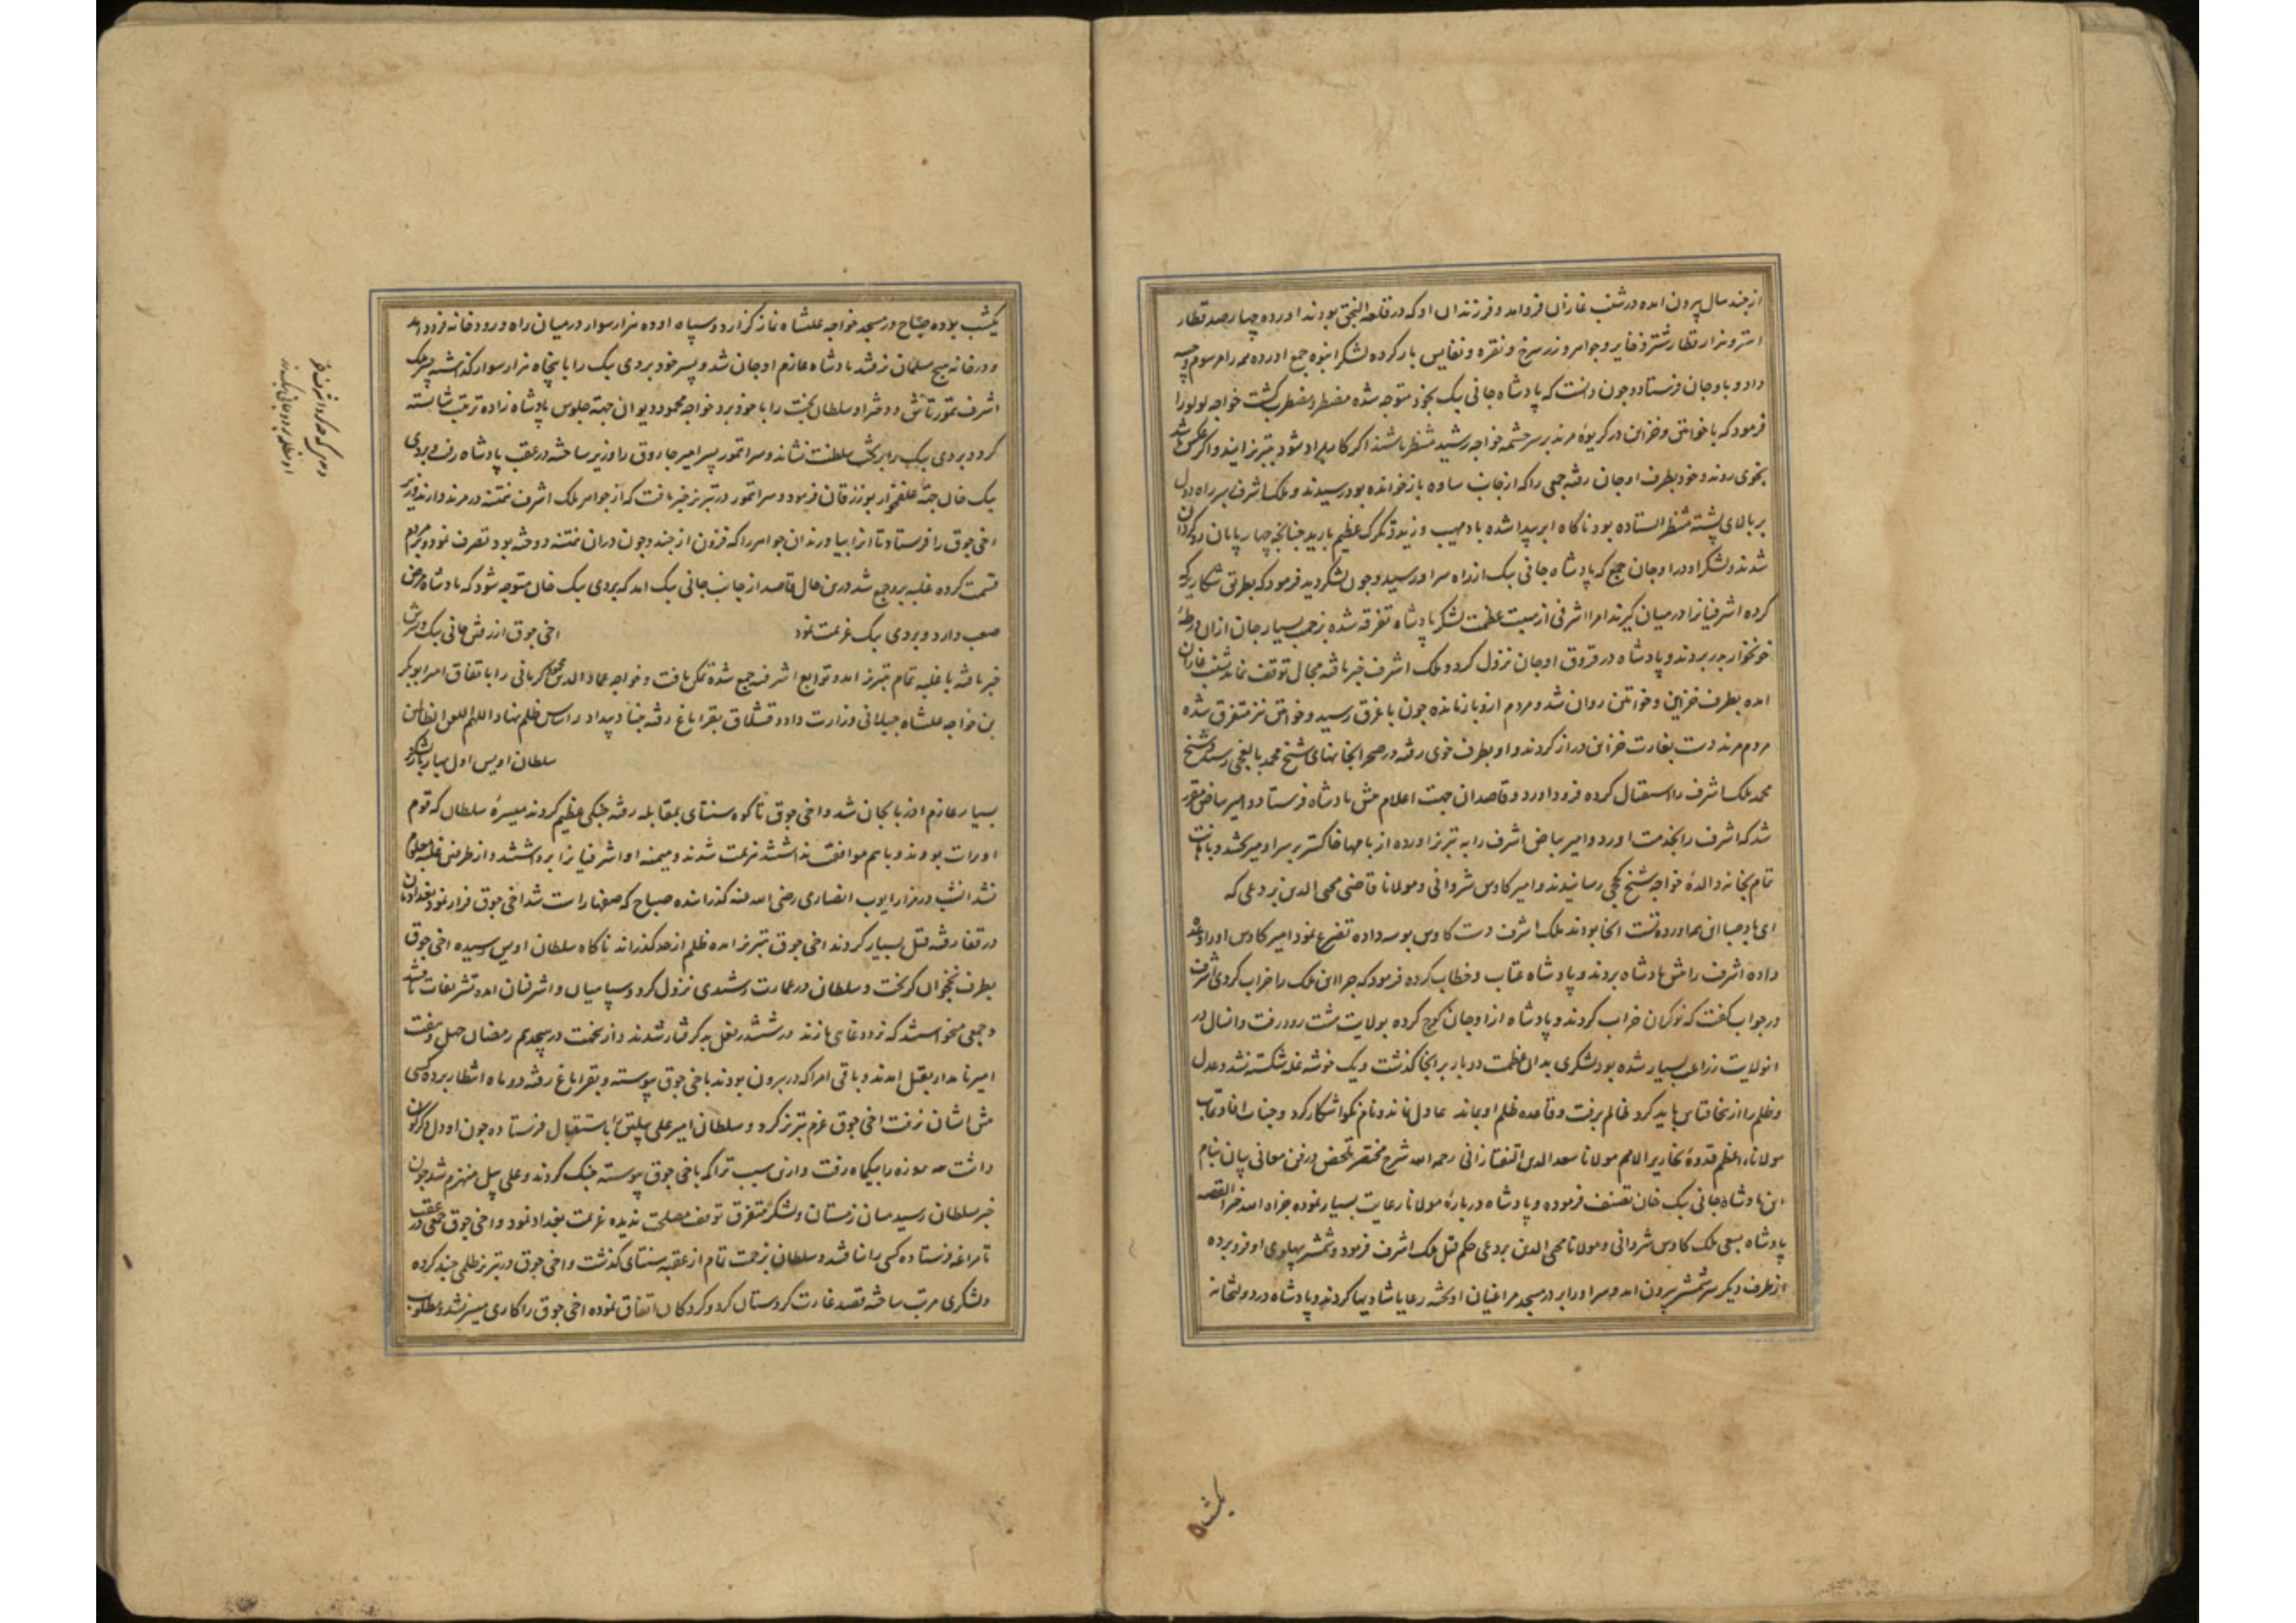 از چند سال بیرون امده در شنب غازان فرود امد و فرزندان او که در قلعه النجق بودند اورده چهار صد قطار
استر و هزار قطار شتر ذخایر و جواهر و زر سرخ و نقره و نفایس بار کرده لشکر انبوه جمع اورده همه را مرسوم و
داد و باوجان فرستاد و چون دانست که پادشاه جانی بیک بخود متوجه شده مضطر و مضطرب کشت خواجه لولو را
فرمود که با خواتین و خزاین در کریوهٔ مرند بر سر چشمه خواجه رشید منتظر باشند اکر کار بمراد شود بتبریز ایند و اکر عکس باشد
بخوی روند و خود بطرف اوجان رفته جمعی را که از جانب ساوه باز خوانده بود رسیدند و ملک اشرف بر سر راه
بر بالای پشته منتظر ایستاده بود ناکاه ابر پیدا شده باد مهیب وزید و تکرک عظیم بارید چنانچه چهار پایان رو کردان
شدند و لشکر او در اوجان جمع که پادشاه جانی بیک از راه سراو رسید و چون لشکر دید فرمود که بطریق شکار
کرده اشرفیانرا در میان کیرند امرا اشرفی از هیبت عظمت لشکر پادشاه تفرقه شده بزحمت بسیار جان ازان ورطهٔ
خونخوار بدر بردند و پادشاه در قروق اوجان نزول کرد و ملک اشرف خبر یافته مجال توقف نماند بشنب غازان
امده بطرف خزاین و خواتین روان شد و مردم ازو باز مانده چون باغرق رسید و خواتین نیز متفرق شده
مردم مرند دست بغارت خزاین دراز کردند و او بطرف خوی رفته در صحرا بخانهای شیخ محمد بالیغجی رسید و شیخ
محمد ملک اشرف را استقبال کرده فرود اورد و قاصدان جهت اعلام پیش پادشاه فرستاد و امیر بیاض مقرر
شد که اشرف را بخدمت اورد و امیر بیاض اشرف را به تبریز اورده از بامها خاکستر بر سر او میریختند و
تمام بخانه والدهٔ خواجه شیخ کججی رسانیدند و امیر کاوس شروانی و مولانا قاضی محیی الدین بردعی که
ای باد صبا این همه اوردهٔ تست انجا بودند ملک اشرف دست کاوس بوسه داده تضرع نمود امیر کاوس او را وعده
داده اشرف را پیش پادشاه بردند و پادشاه عتاب و خطاب کرده فرمود که چرا این ملک را خراب کردی اشرف
در جواب کفت که نوکران خراب کردند و پادشاه از اوجان کوچ کرده بولایت هشت رود رفت و انسال در
انولایت زراعت بسیار شده بود لشکری بدان عظمت دو بار بر انجا کذشت و یک خوشه غله شکسته نشد و عدل
و ظلم را ازینجا قیاس باید کرد ظالم برفت و قاعده ظلم او بماند عادل نماند و نام نکو اشکار کرد و جناب
مولانا اعظم قدوة نحاریر الامم مولانا سعد الدین التفتازانی رحمه الله شرح مختصر تلخیص در فن معانی بیان بنام
این پادشاه جانی بیک خان تصنیف فرموده و پادشاه دربارهٔ مولانا رعایت بسیار نموده جزاه الله خیرا القصه
پادشاه بسعی ملک کاوس شروانی و مولانا محیی الدین بردعی حکم قتل ملک اشرف فرمود و شمشیر بپهلوی او فرو برده
از طرف دیکر سر شمشیر بیرون امد و سر او را بر در مسجد مراغیان اویخته رعایا شادیها کردند و پادشاه در دولتخانه
یکشب
یکشب بوده صباح در مسجد خواجه علیشاه نماز کزارد و سپاه او ده هزار سوار در میان راه و رودخانه فرود امد
و در خانه هیچ مسلمان نرفتند پادشاه عازم اوجان شد و پسر خود بردی بیک را با پنجاه هزار سوار کذاشته پسر ملک
اشرف تمورتاش و دختر او سلطان بخت را با خود برد و خواجه محمود دیوان جهته جلوس پادشاه زاده ترتیب شایسته
کرد و بردی بیک را بر تخت سلطنت نشاند و سرا تمور پسر امیر جاروق را وزیر ساخته در عقب پادشاه رفت و بردی
بیک خان جهة علفخوار بوزرقان فرمود و سرا تمور در تبریز خبر یافت که از جواهر ملک اشرف نمتنه در مرند دارند وزیر
اخی جوق را فرستاد تا انرا بیاورند ان جواهر را که فزون از چند و چون دران نمتنه دوخته بود تصرف نمود و بمردم
قسمت کرده غلبه برو جمع شد درین حال قاصد از جانب جانی بیک امد که بردی بیک خان متوجه شود که پادشاه مرض
صعب دارد و بردی بیک عزیمت نمود
اخی جوق از رفتن جانی بیک و پسرش
خبر یافته با غلبه تمام بتبریز امد و توابع اشرف جمع شده تمکن یافت و خواجه عماد الدین محمود کرمانی را باتفاق امیر ابوبکر
بن خواجه علیشاه جیلانی وزارت داد و قشلاق بقراباغ رفته بنیاد بیداد و اساس ظلم نهاد اللهم العن الظالمین
سلطان اویس اول بهار با لشکر
بسیار عازم اذربایجان شد و اخی جوق تا کوه سنتای بمقابله رفته جنکی عظیم کردند میسرهٔ سلطان که قوم
اورات بودند و باهم موافقت نداشتند هزیمت شدند و میمنه او اشرفیانرا برداشتند و از طرفین غلبه معلوم
نشد انشب در مزار ایوب انصاری رضی الله عنه کذرانده صباح که صفها راست شد اخی جوق فرار نمود بغدادیان
در قفا رفته قتل بسیار کردند اخی جوق بتبریز امده ظلم از حد کذراند ناکاه سلطان اویس رسیده اخی جوق
بطرف نخجوان کریخت و سلطان در عمارت رشیدی نزول کرد و سپاهیان و اشرفیان امده تشریفات یافتند
و جمعی میخواستند که نرد دغای بازند در ششدر بفعل بد کرفتار شدند و از نخست در هیجدهم رمضان چهل و هفت
امیر نامدار بقتل امدند و باقی امرا که در بیرون بودند باخی جوق پیوسته و بقراباغ رفته دو ماه انتظار برده کسی
پیش ایشان نرفت اخی جوق عزم تبریز کرد و سلطان امیر علی پیلتن را باستقبال فرستاده چون او دل دکرکون
داشت سه روزه را بیکماه رفت و ازین سبب تراکمه باخی جوق پیوسته جنک کردند و علی پیل منهزم شد چون
خبر سلطان رسید میان زمستان و لشکر متفرق توقف مصلحت ندیده عزیمت بغداد نمود و اخی جوق جمعی در عقب
تا مراغه فرستاده کسی را نیافتند و سلطان بزحمت تمام از عقبه سنتای کذشت و اخی جوق در تبریز ظلمی چند کرده
و لشکری مرتب ساخته قصد غارت کردستان کرد و کردکان اتفاق نموده اخی جوق را کاری میسر نشد و مطلوب
دیدی که چه کرد اشرف خر
او مظلمه برد و جانی بیک زر